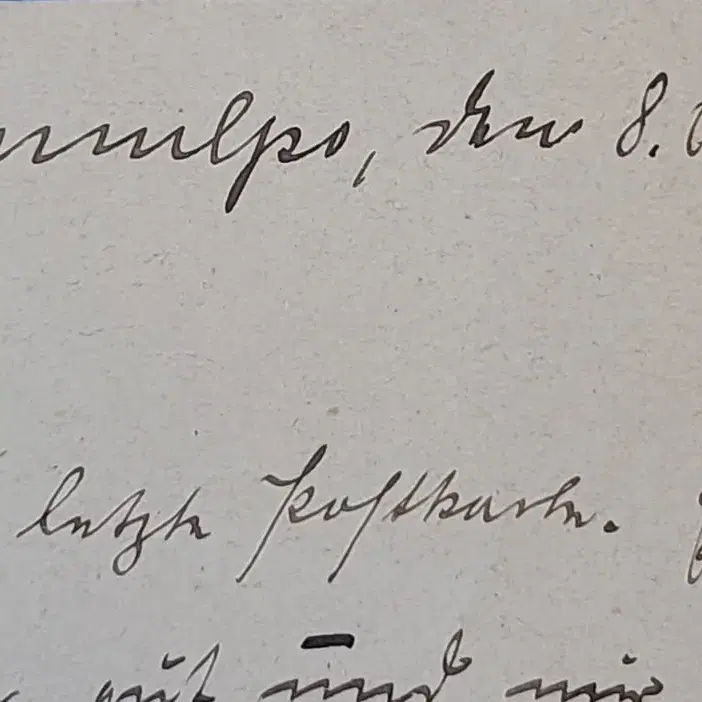 mulpo, den 8.
letzte Postkarte.
gut und mir